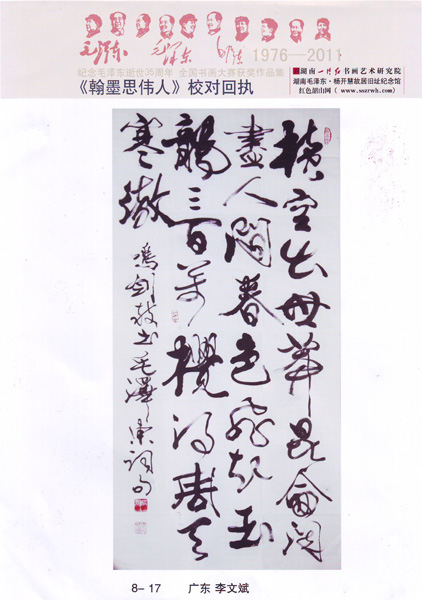 毛泽东 毛泽东 毛泽东 1976—2011
纪念毛泽东逝世35周年 全国书画大赛获奖作品集
《翰墨思伟人》校对回执
湖南一片红书画艺术研究院
湖南毛泽东·杨开慧故居旧址纪念馆
红色韶山网（www.sszrwh.com）
横空出世莽昆侖閱
盡人間春色飛起玉
龍三百萬攪得周天
寒徹
書毛澤東詞句
8-17 广东 李文斌